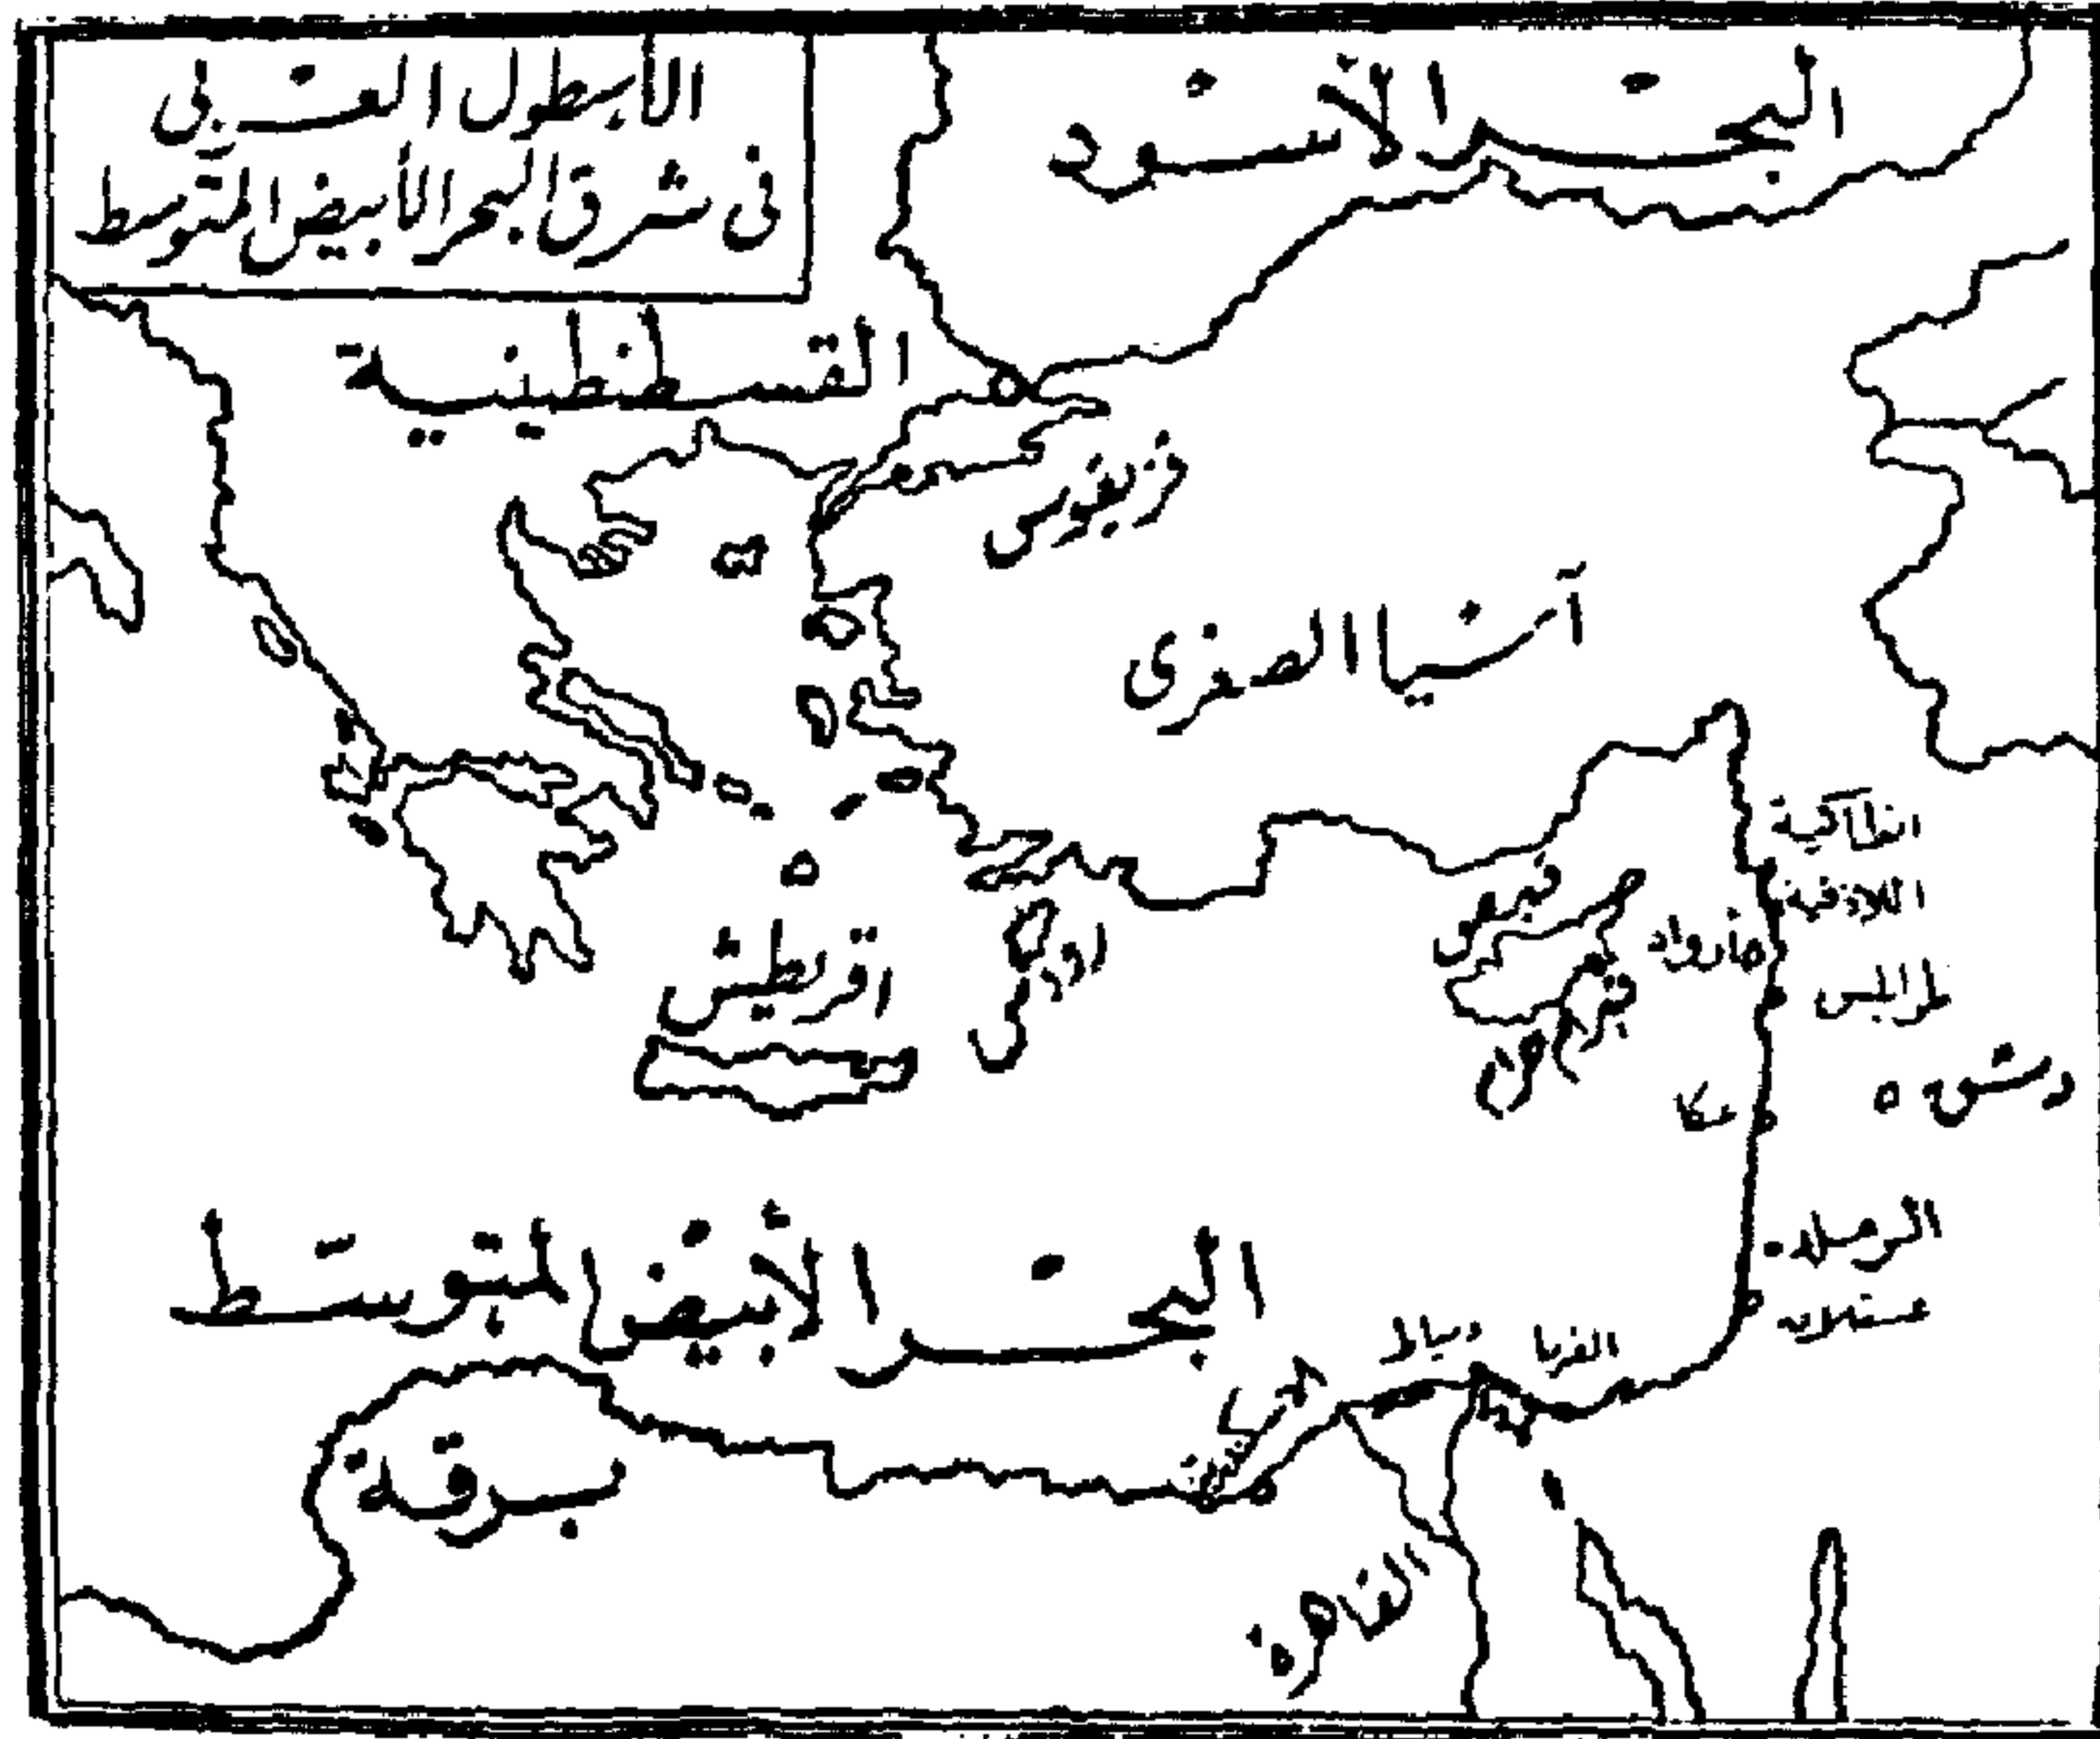 الأسطول العربى
فى شرق البحر الأبيض المتوسط
البحر الأسود
القسطنطينية
آسيا الصغرى
انطاكية
اللاذقية
أرواد
قبرص
رودس
اقريطش
طرابلس
دمشق
عكا
الرملة
عسقلان
البحر الأبيض المتوسط
الفرما
دمياط
برقة
القاهرة